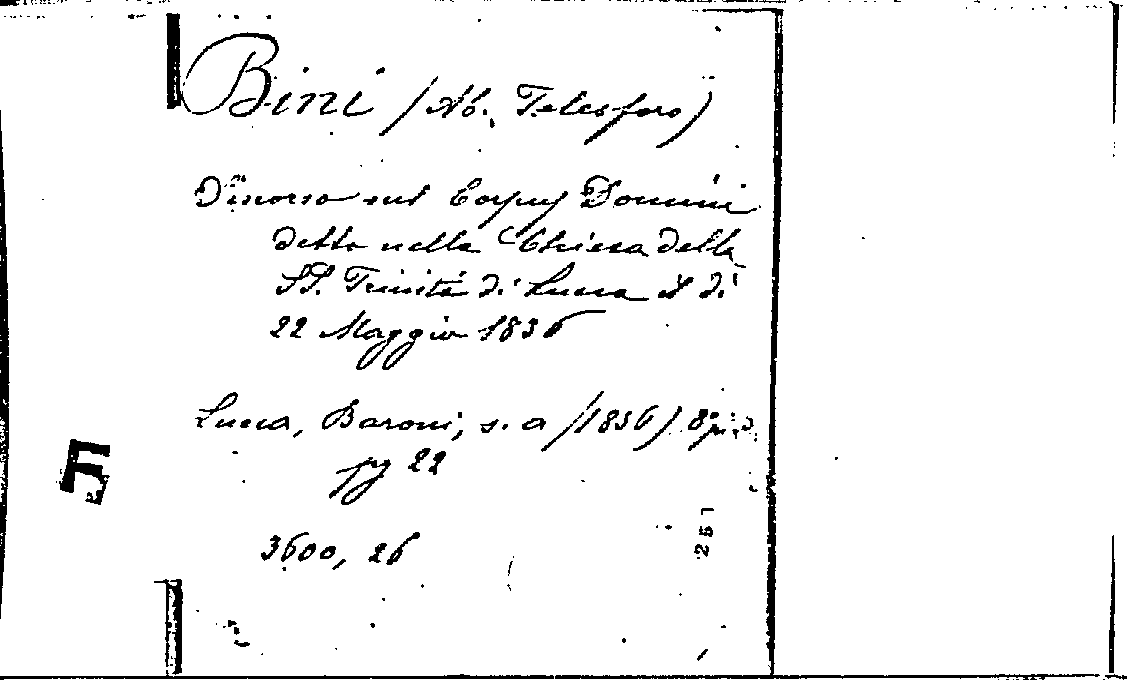 Bini (Ab. Telesforo)
Discorso sul Corpus Domini
detto nella Chiesa della
SS. Trinità di Lucca il dì
22 Maggio 1836
Lucca, Baroni, s. a (1836) 8°
pg 22
3600, 26
251